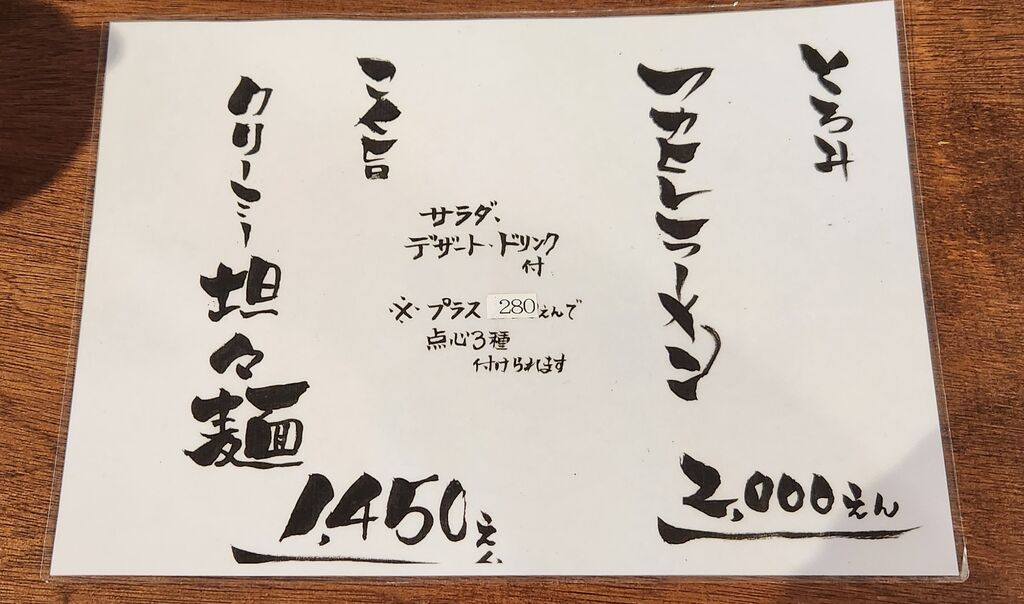 とろみ
フカヒレラーメン
2,000えん
サラダ、
デザート・ドリンク
付
※・プラス 280えんで
点心3種
付けられます
こく旨
クリーミー坦々麺
1,450えん